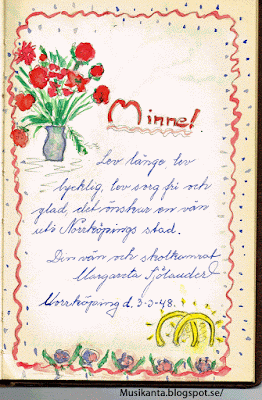 Minne!
Lev länge lev
lycklig, lev sorg fri och
glad, det önskar en vän
uti Norrköpings stad.
Din vän och skolkamrat
Margareta Sjölander
Norrköping d. 3-3-48.
Musikanta.blogspot.se/